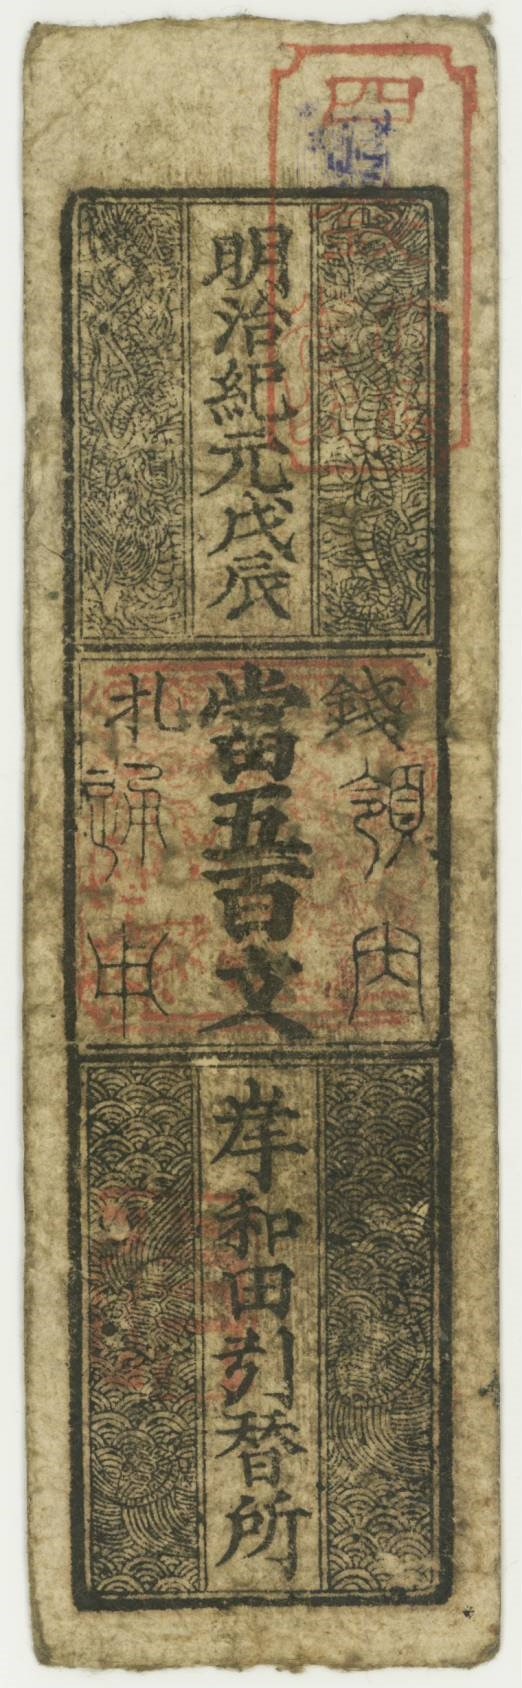 四
明治紀元戊辰
錢領内
當五百文
札通用
岸和田引替所